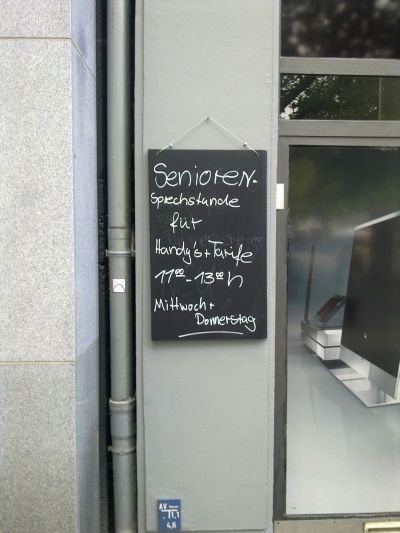 Senioren-
Sprechstunde
für
Handy's + Tarife
11⁰⁰ - 13⁰⁰ h
Mittwoch +
Donnerstag
AV
11,1
4,6